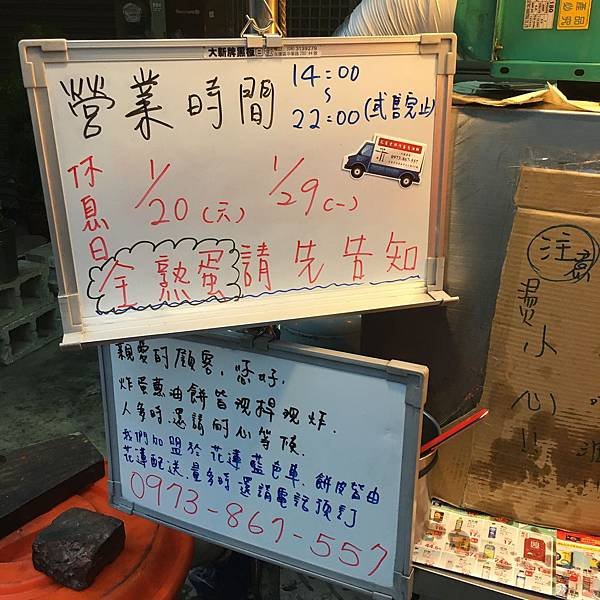 大新牌黑板
營業時間
14:00
~
22:00(或售完止)
休息日
1/20(六)
1/29(一)
全熟蛋 請先告知
0973-867-557
親愛的顧客,您好.
炸蛋蔥油餅皆現桿現炸.
人多時.還請耐心等候.
我們加盟於花蓮藍色車.餅皮皆由
花蓮配送.量多時還請電話預訂
0973-867-557
注意
燙
小
心
!!